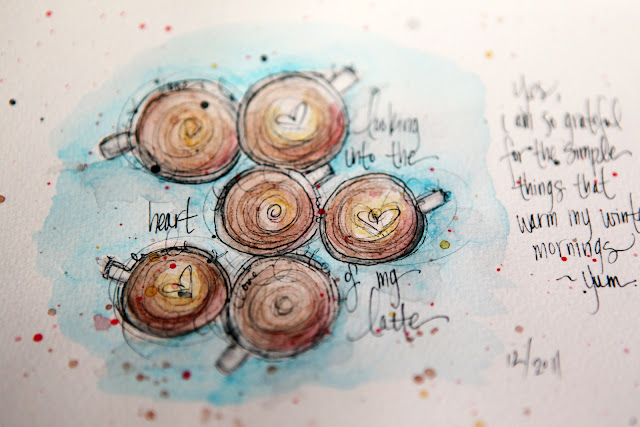 looking
into the
heart
of my
latte
Yes,
I am so grateful
for the simple
things that
warm my winte
mornings
~ yum.
12/2011